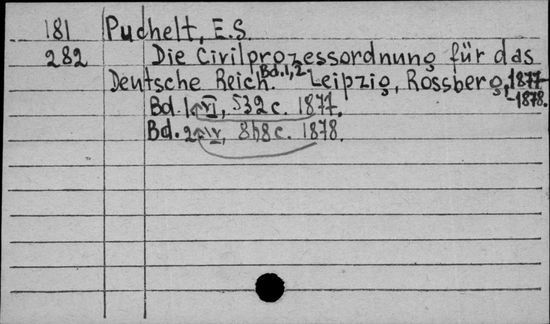 181 Puchelt, E.S.
282 Die Civilprozessordnung für das
Deutsche Reich. Bd.1,2. Leipzig, Rossberg, 1877
-1878.
Bd. 1. VI, 532 c. 1877.
Bd. 2. IV, 848 c. 1878.